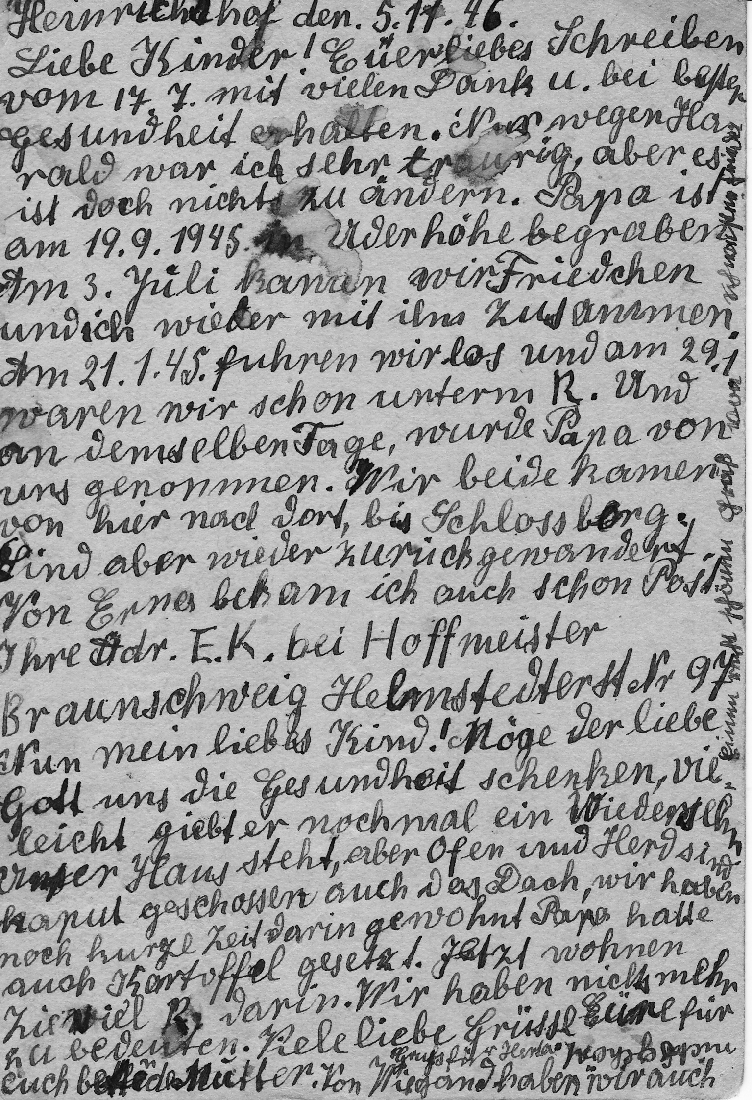 Heinrichshof den. 5.11.46.
Liebe Kinder! Euer liebes Schreiben
vom 17.7. mit vielen Dank u. bei bester
gesundheit erhalten. Nur wegen Ha
rald war ich sehr traurig, aber es
ist doch nichts zu ändern. Papa ist
am 19.9.1945. in Uderhöhe begraben
Am 3. Juli kamen wir Friedchen
und ich wieder mit ihm zusammen
Am 21.1.45. fuhren wir los und am 29.1
waren wir schon unterm R. Und
an demselben Tage, wurde Papa von
uns genommen. Wir beide kamen
von hier nach dort, bis Schlossberg.
Sind aber wieder zurückgewandert.
Von Erna bekam ich auch schon Post
Ihre Adr. E.K. bei Hoffmeister
Braunschweig Helmstedterst Nr 97
Nun mein liebes Kind! Möge der liebe
Gott uns die Gesundheit schenken, viel
leicht giebt er nochmal ein Wiedersehn
Unser Haus steht, aber Ofen und Herd sind
kaput geschossen auch das Dach, wir haben
noch kurze Zeit darin gewohnt Papa hatte
auch Kartoffel gesetzt. Jetzt wohnen
Zieviel R. darin. Wir haben nichts mehr
zu bedeuten. Viele liebe Grüsse Eure für
euch Mutter. Von Wiegand haben wir auch
einen